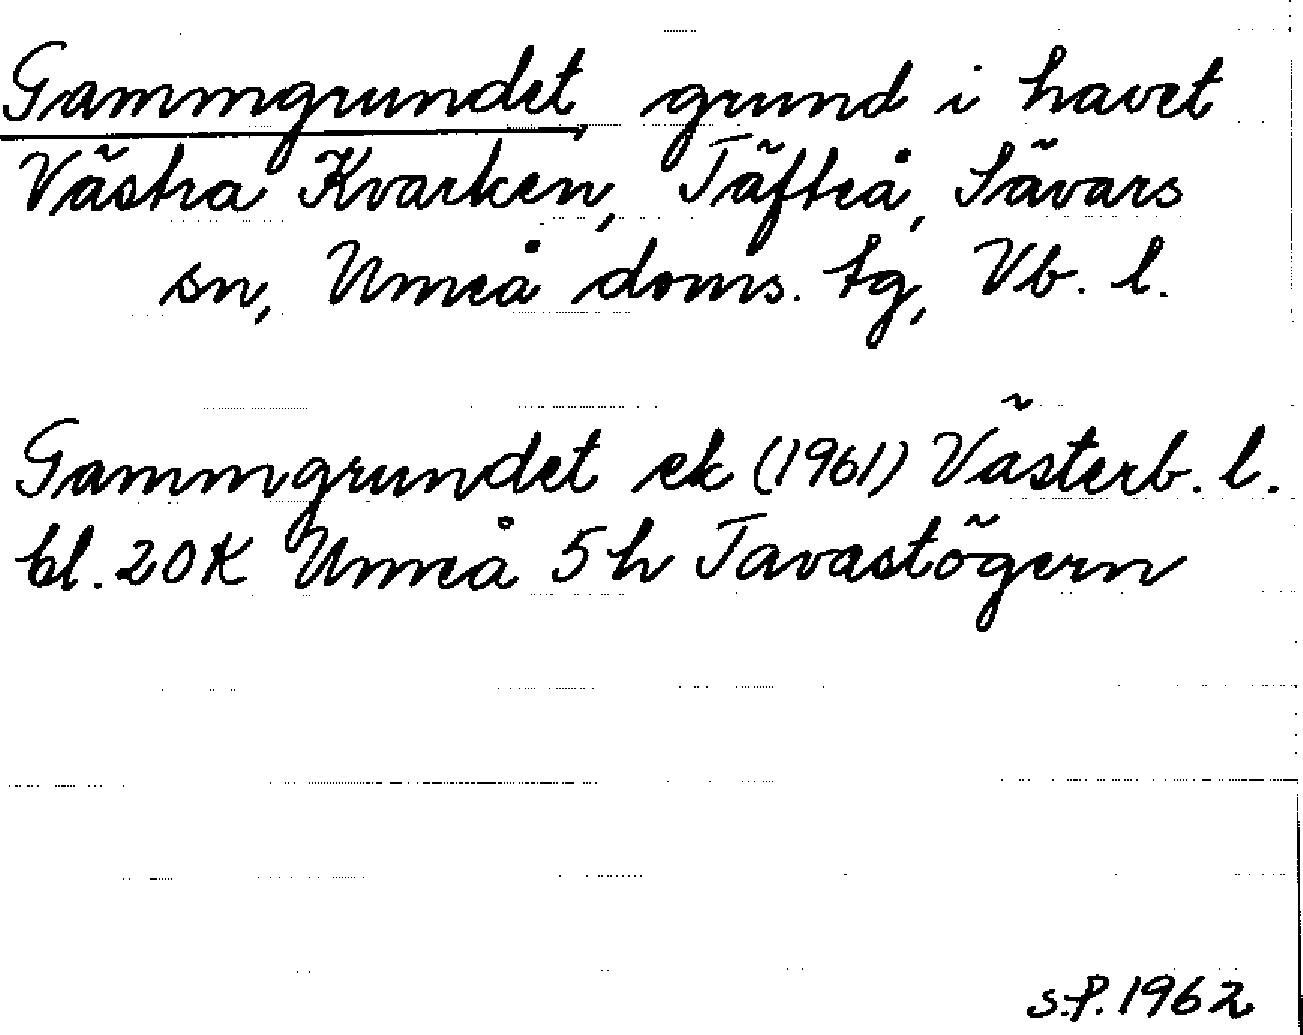 Gammgrundet, grund i havet
Västra Kvarken, Täfteå, Sävars
sn, Umeå doms. tg, Vb. l.
Gammgrundet ek (1961) Västerb. l.
bl. 20K Umeå 5h Tavastögern
S.P. 1962